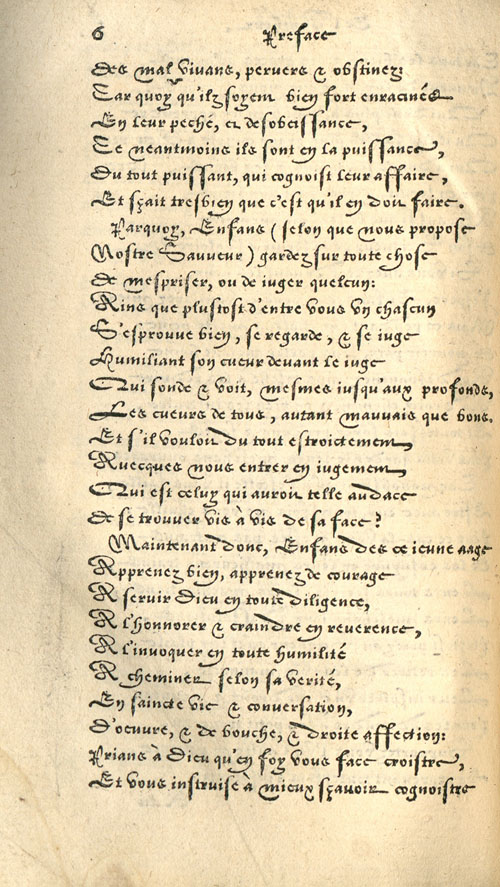 6 Preface
Des mal vivans, pervers & obstinez:
Car quoy qu'ilz soyent bien fort enracinés
En leur peché, et desobeissance,
Ce neantmoins ils sont en la puissance,
Du tout puissant, qui cognoist leur affaire,
Et sçait tresbien que c'est qu'il en doit faire.
Parquoy, Enfans (selon que nous propose
Nostre Sauveur) gardez sur toute chose
De mespriser, ou de iuger quelcun:
Ains que plustost d'entre vous un chascun
S'esprouve bien, se regarde, & se iuge
Humiliant son cueur devant le iuge
Qui sonde & voit, mesmes iusqu'aux profonds,
Les cueurs de tous, autant mauvais que bons.
Et s'il vouloit du tout estroictement,
Avecques nous entrer en iugement,
Qui est celuy qui auroit telle audace
De se trouver vis à vis de sa face?
Maintenant donc, Enfans des ce ieune aage
Apprenez bien, apprenez de courage
A servir Dieu en toute diligence,
A l'honnorer & craindre en reverence,
A l'invoquer en toute humilité
A cheminer selon sa verité,
En saincte vie & conversation,
D'oeuvre, & de bouche, & droite affection:
Prians à Dieu qu'en foy vous face croistre,
Et vous instruise à mieux sçavoir cognoistre